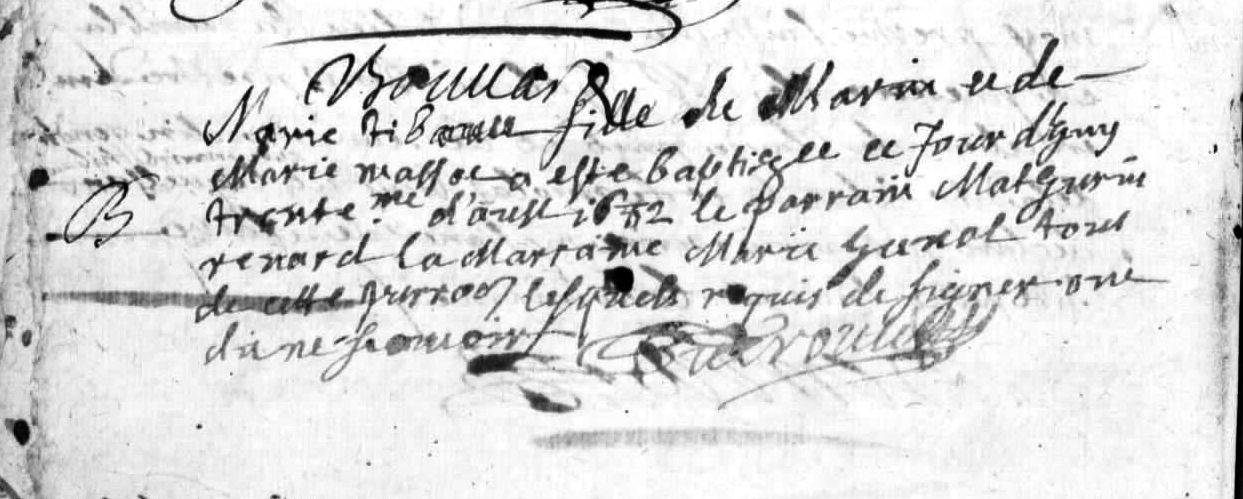 Marie tibault fille de Marin et de
B
Marie massot a este baptizee ce Jour d'huy
trente.me d'aust le parrain Mathurin
renard la Marraine Marie tous
de cette parroe lesquels requis de signer ont
dit ne scavoir